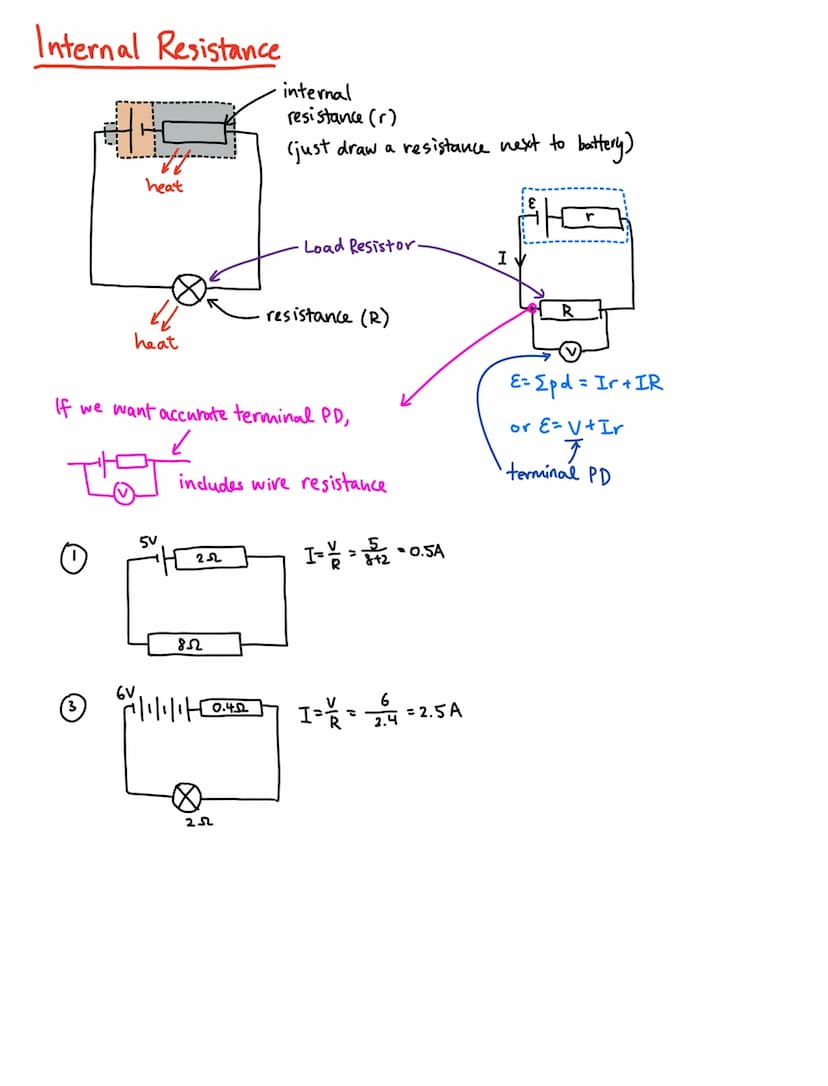 Internal Resistance
internal
resistance (r)
(just draw a resistance next to battery)
heat
ε
r
I
Load Resistor
R
resistance (R)
heat
V
ε = Σpd = Ir + IR
or ε = V + Ir
terminal PD
If we want accurate terminal PD,
V
includes wire resistance
①
5V
2Ω
I = V/R = 5/8+2 = 0.5A
8Ω
③
6V
0.4Ω
I = V/R = 6/2.4 = 2.5A
2Ω